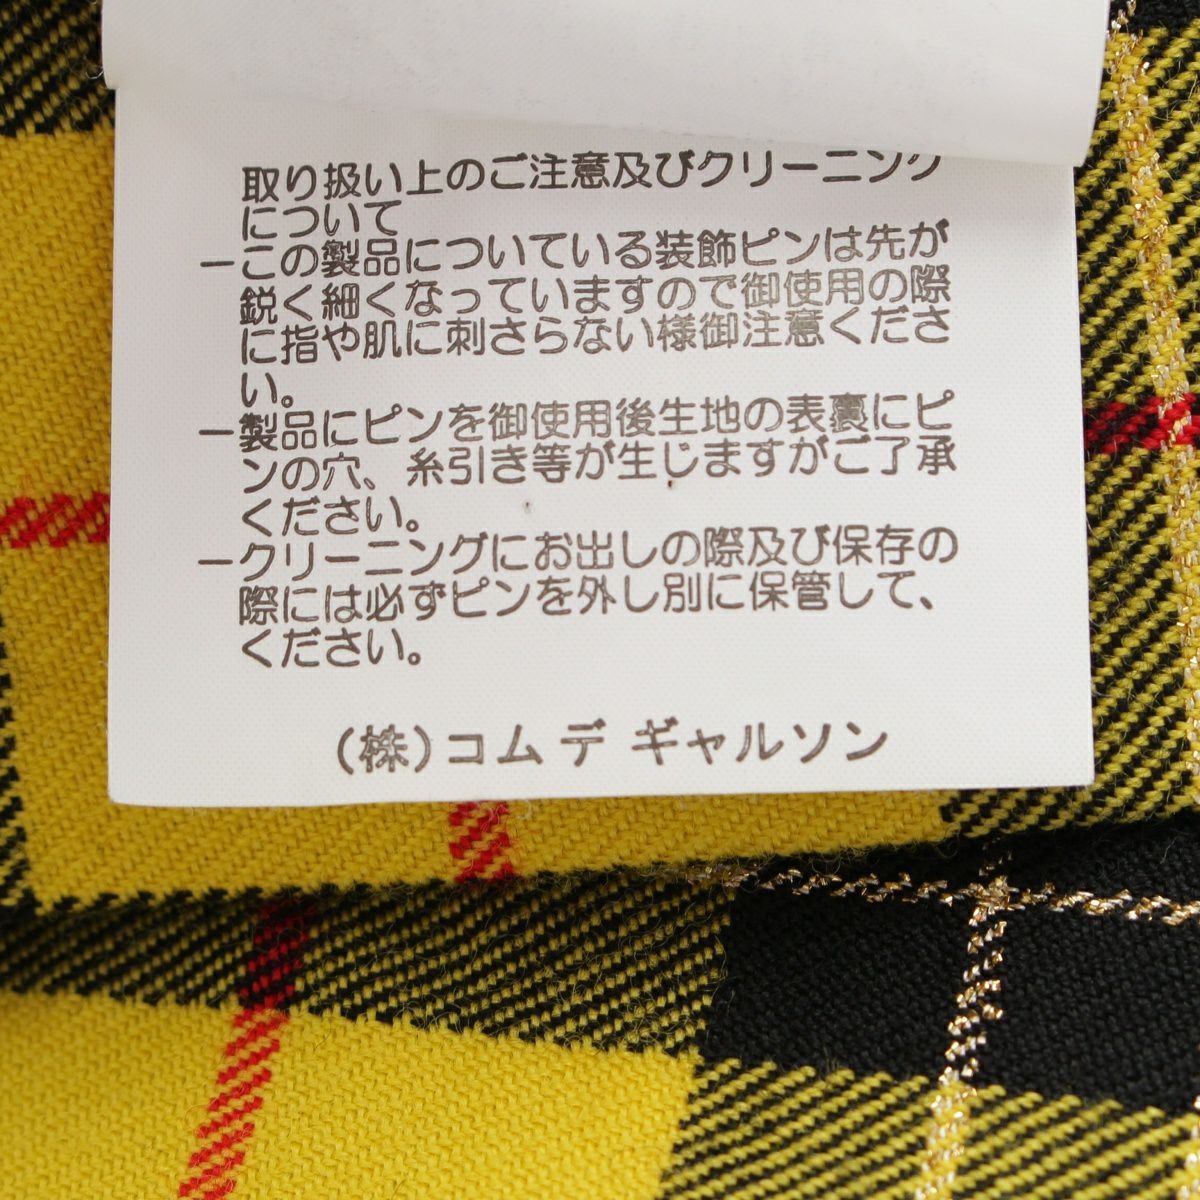 取り扱い上のご注意及びクリーニング
について
−この製品についている装飾ピンは先が
鋭く細くなっていますので御使用の際
に指や肌に刺さらない様御注意くださ
い。
−製品にピンを御使用後生地の表裏にピ
ンの穴、糸引き等が生じますがご了承
ください。
−クリーニングにお出しの際及び保存の
際には必ずピンを外し別に保管して、
ください。
(株)コム デ ギャルソン